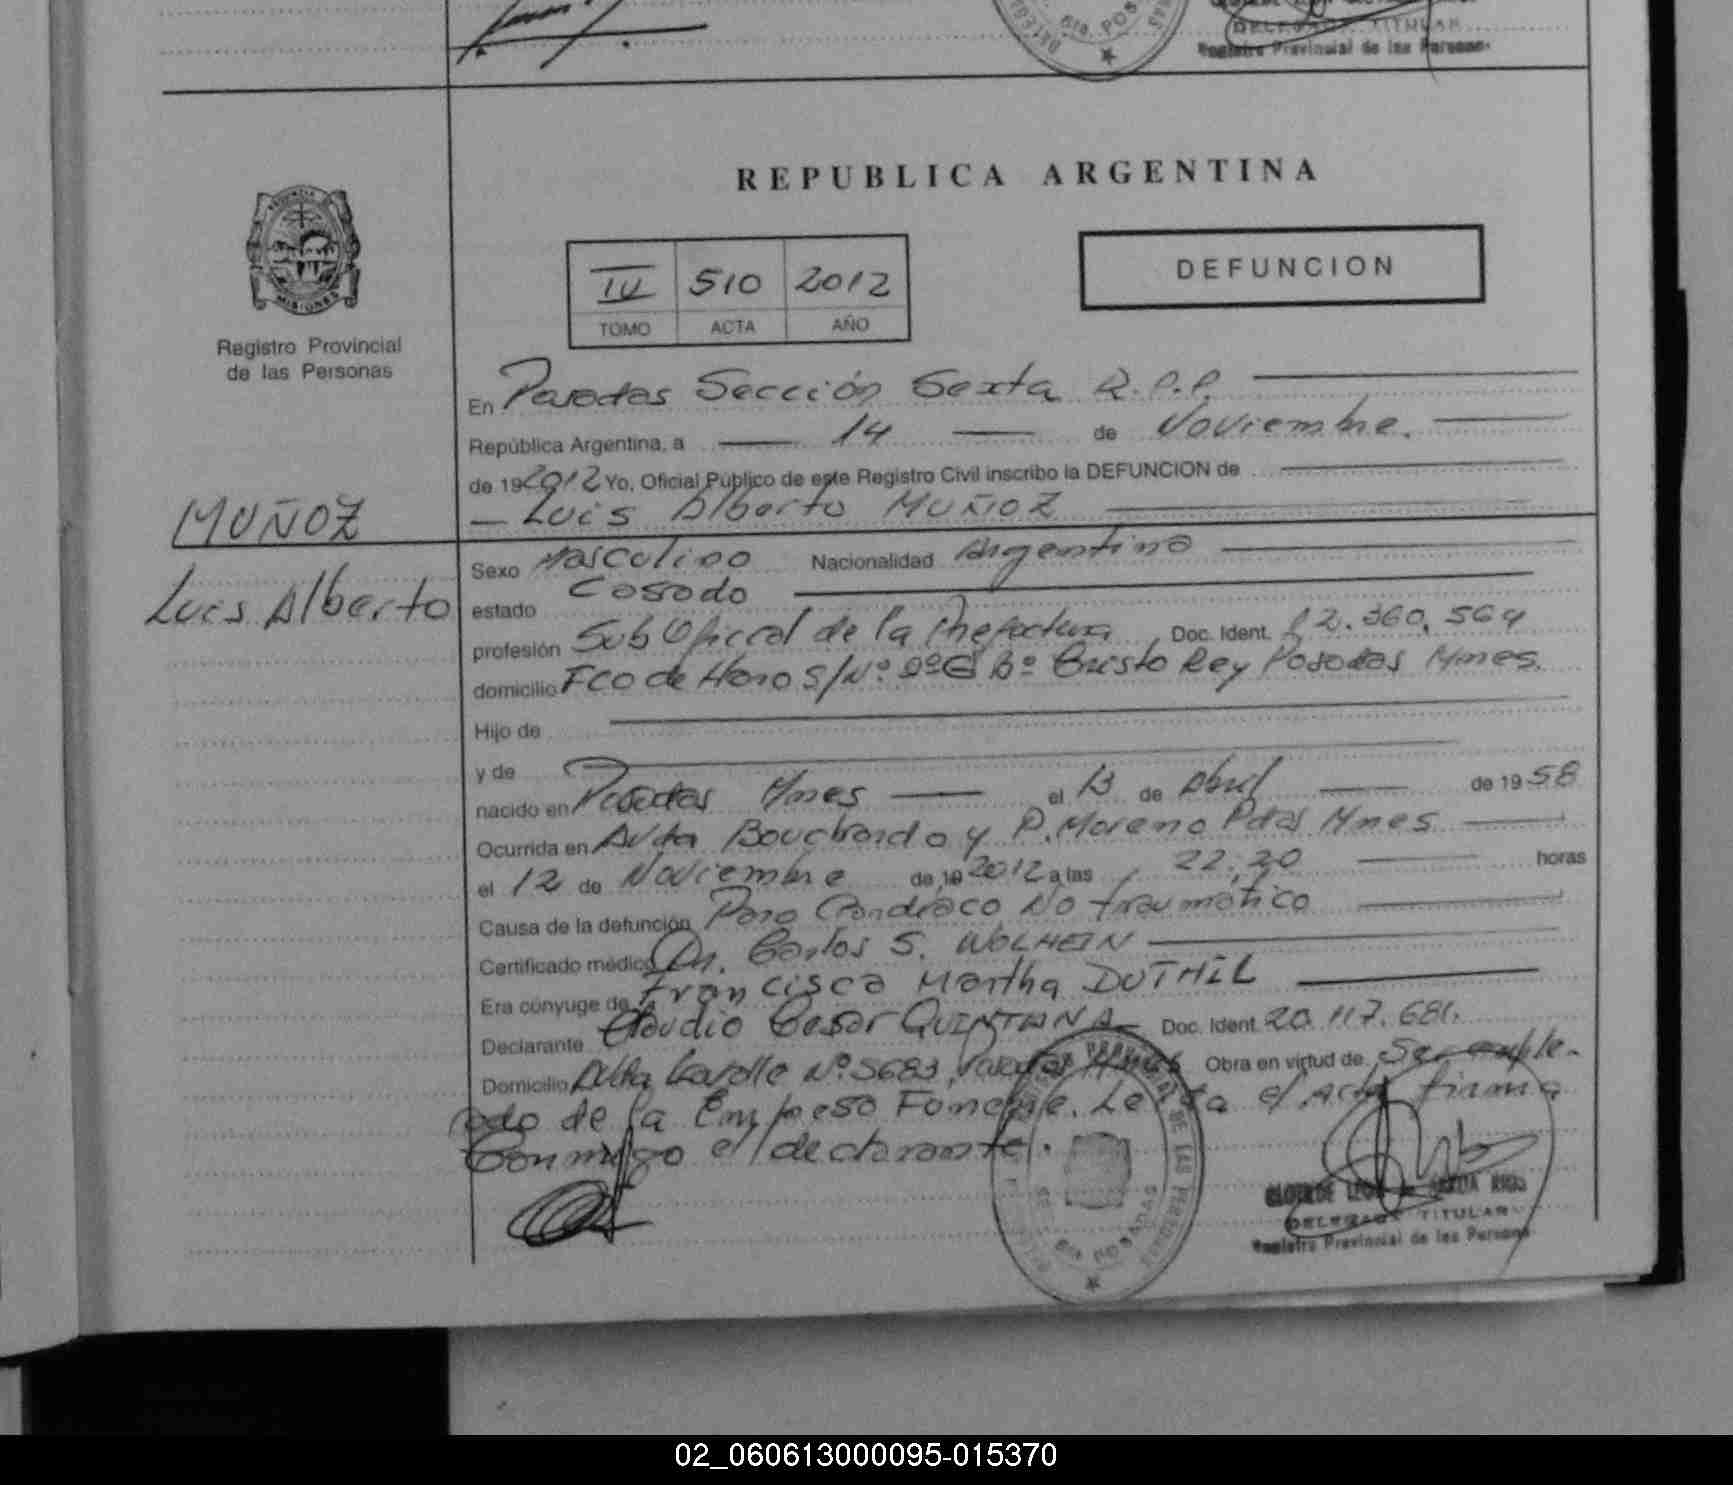 DELEGADA TITULAR
Registro Provincial de las Personas
REPUBLICA ARGENTINA
PROVINCIA DE
MISIONES
Registro Provincial
de las Personas
IV 510 2012
TOMO ACTA AÑO
DEFUNCION
En Posadas Sección Sexta R.P.P.
República Argentina, a 14 de Noviembre.
de 19 2012 Yo, Oficial Público de este Registro Civil inscribo la DEFUNCION de
Luis Alberto MUÑOZ
MUÑOZ
Luis Alberto
Sexo Masculino Nacionalidad Argentina
estado Casado
profesión Sub Oficial de la Prefectura Doc. Ident. 12.360.564
domicilio Fco de Haro S/Nº Bº Cristo Rey Posadas Mnes.
Hijo de
y de
nacido en Posadas Mnes el 13 de Abril de 19 58
Ocurrida en Avda Bouchardo y P. Moreno Pdas Mnes
el 12 de Noviembre de 19 2012 a las 22,20 horas
Causa de la defunción Paro Cardiaco No traumático
Certificado médico Dr. Carlos S. WOLHEIN
Era cónyuge de Francisca Martha DUTHIL
Declarante Claudio Cesar QUINTANA Doc. Ident. 20.117.681.
Domicilio Avda Lavalle Nº 5683, Posadas Mnes Obra en virtud de Ser emple-
ado de la Empresa Fúnebre. Leída el Acta firma
Conmigo el declarante.
DE LAS PERSONAS
POSADAS
DELEGADA TITULAR
Registro Provincial de las Personas
02_060613000095-015370